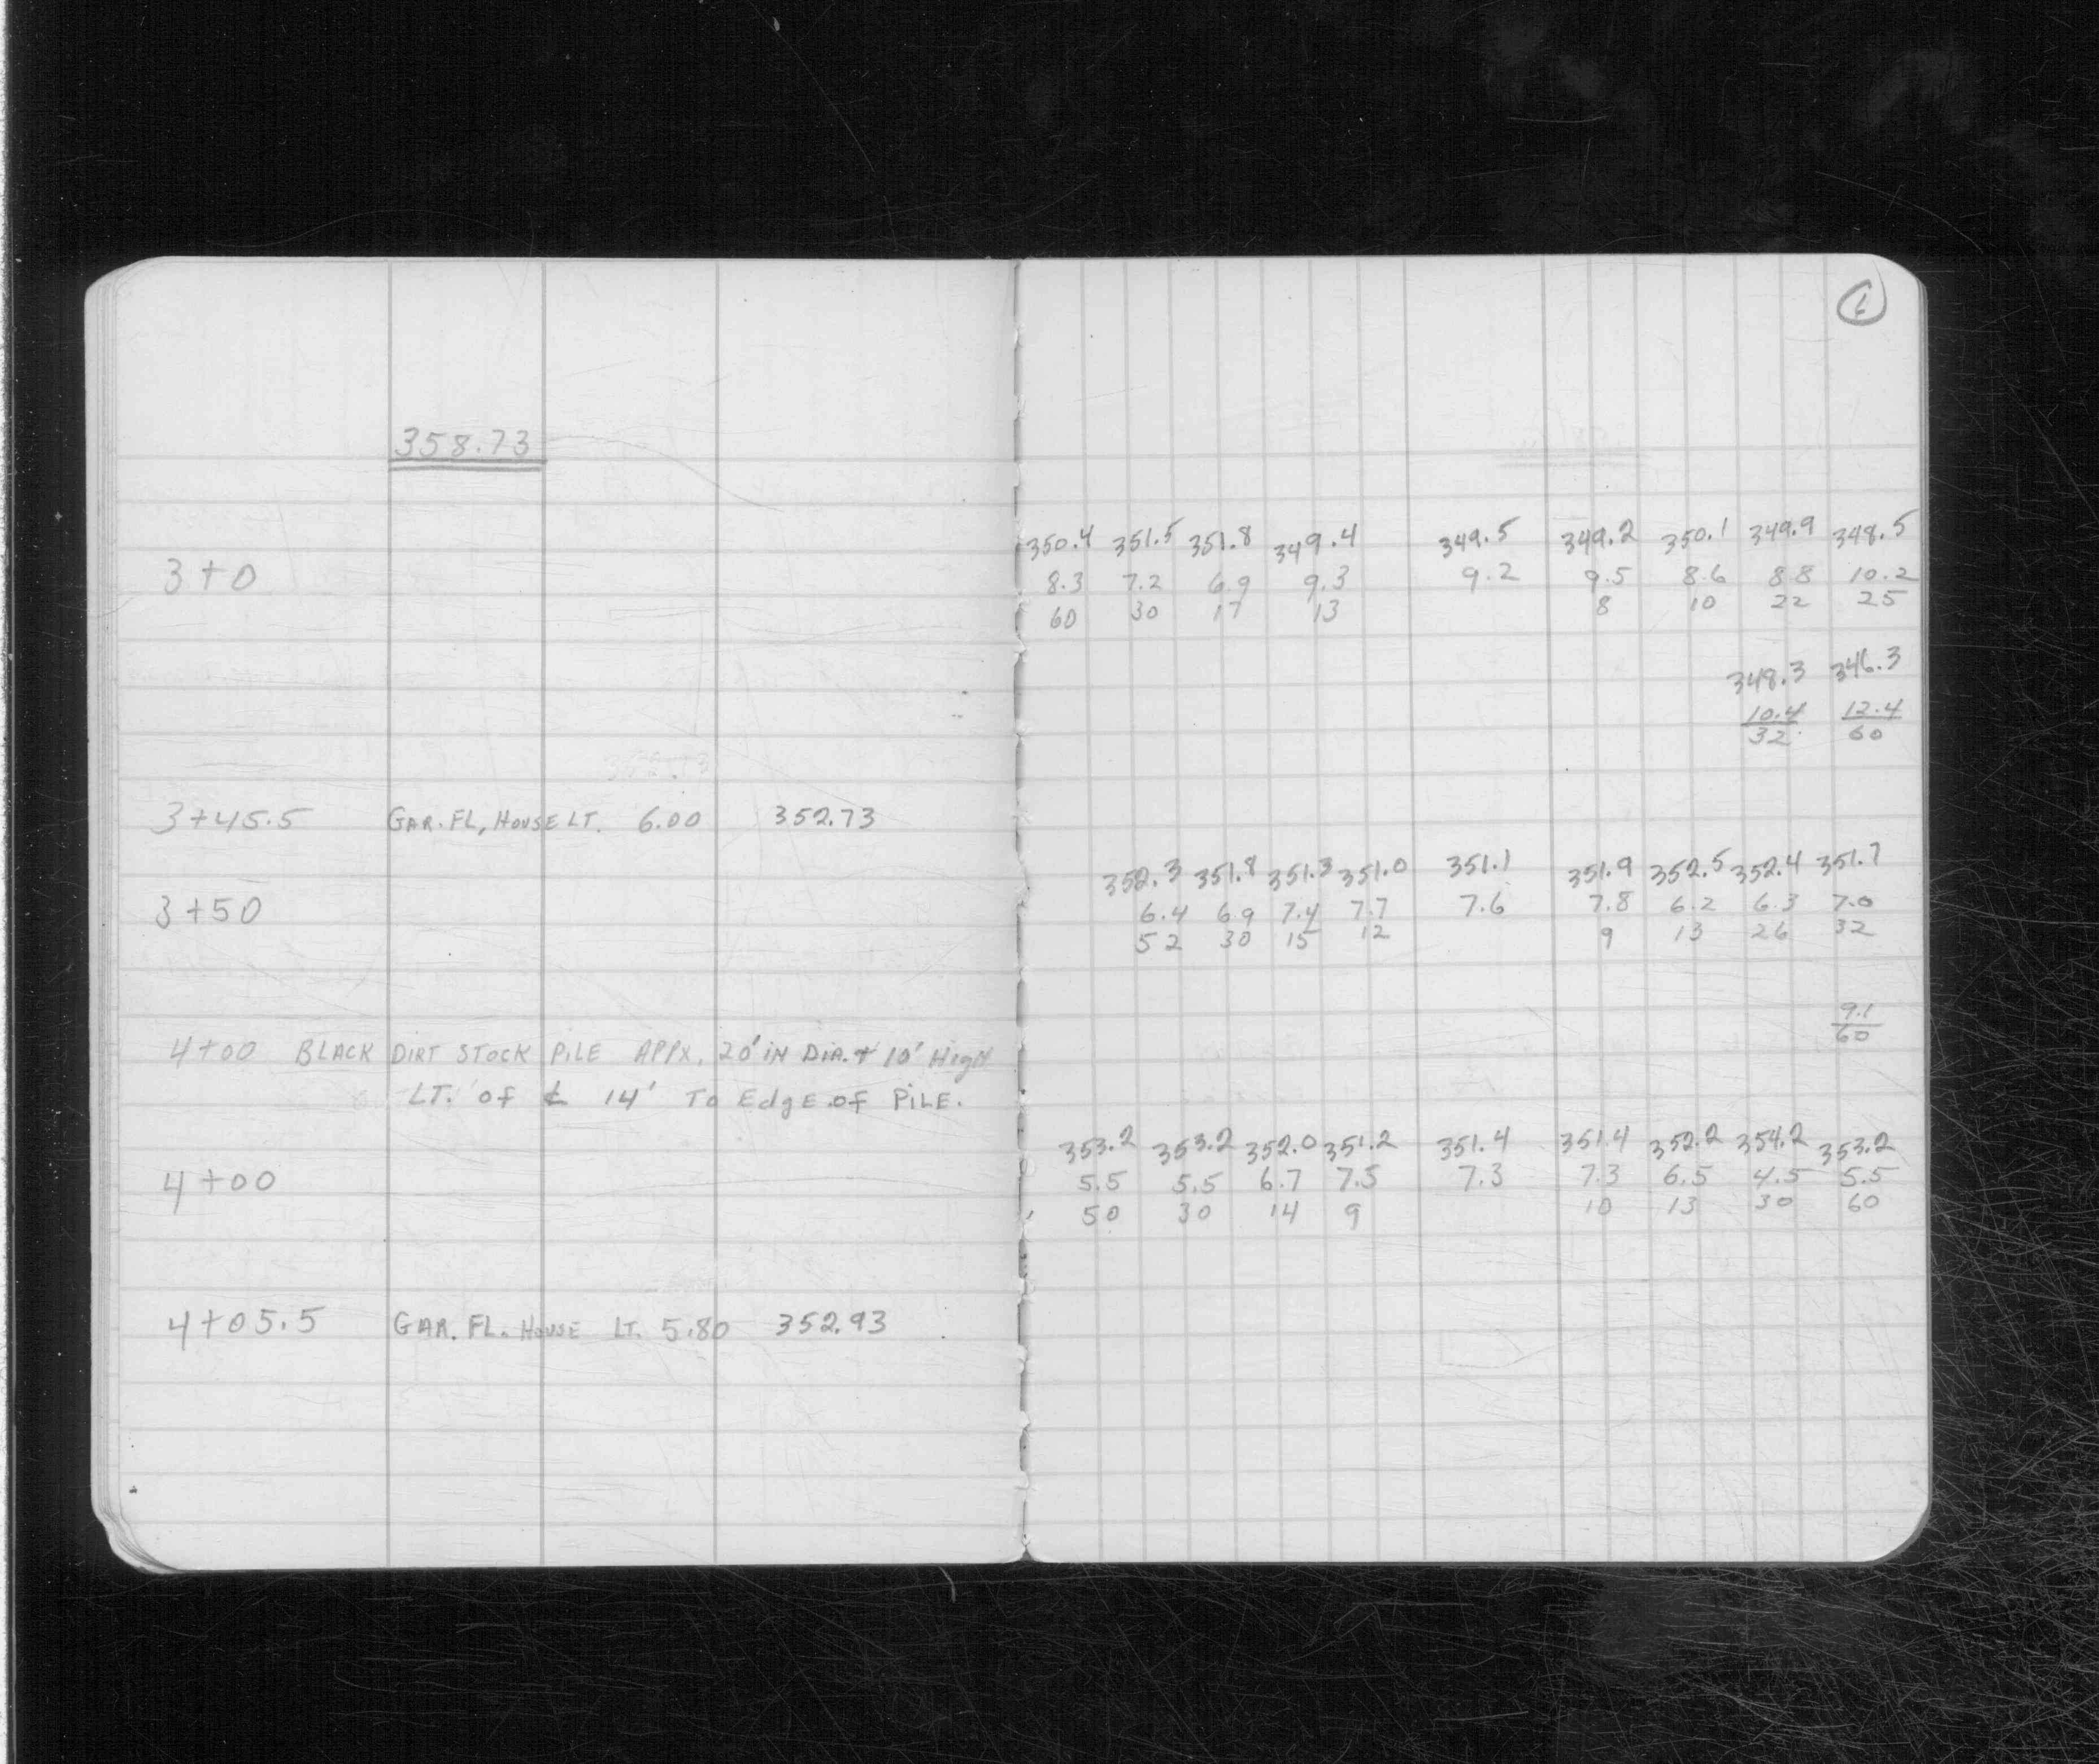 358.73
350.4 351.5 351.8 349.4 349.5 349.2 350.1 349.9 348.5
3+0 8.3 7.2 6.9 9.3 9.2 9.5 8.6 8.8 10.2
60 30 17 13 8 10 22 25
348.3 346.3
10.4 12.4
32 60
3+45.5 GAR. FL, HOUSE LT. 6.00 352.73
352.3 351.8 351.3 351.0 351.1 351.9 352.5 352.4 351.7
3+50 6.4 6.9 7.4 7.7 7.6 7.8 6.2 6.3 7.0
52 30 15 12 9 13 26 32
9.1
60
4+00 BLACK DIRT STOCK PILE APPX. 20' iN DiA. + 10' HigH
LT. of ℄ 14' To EdgE of PiLE.
353.2 353.2 352.0 351.2 351.4 351.4 352.2 354.2 353.2
4+00 5.5 5.5 6.7 7.5 7.3 7.3 6.5 4.5 5.5
50 30 14 9 10 13 30 60
4+05.5 GAR. FL. HOUSE LT. 5.80 352.93